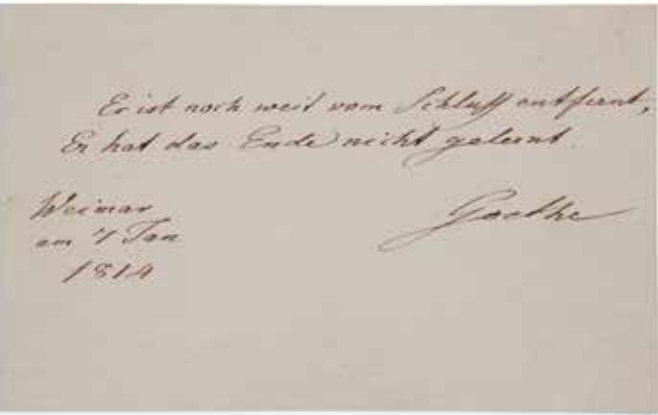 Er ist noch weit vom Schluß entfernt,
Er hat das Ende nicht gelernt.
Weimar
am 7 Jan
1814
Goethe